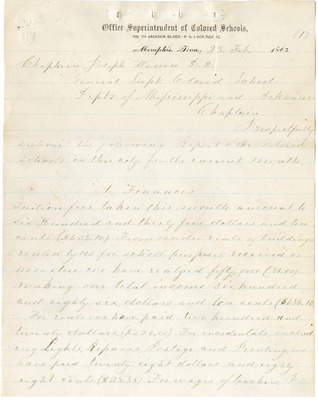 Office Superintendent of Colored Schools,
JACKSON BLOCK
(1)
Memphis, Tenn., 23 Feb. 186
Chaplain Joseph Warren
General Supt Colored Schools
Depts of Mississippi and Arkansas
Chaplain
I respectfully
submit the following Report of the Colored
Schools in this city for the current month.
1. Finances
Tuition fees taken this month amount to
Six Hundred and thirty five dollars and ten
cents ($635.10) From under rents of buildings
rented by us for school purposes received
we have realized fifty one ($51.00)
making our total income Six hundred
and eighty six dollars and ten cents ($686.10)
For rents we have paid two hundred and
twenty dollars ($220.00) For incidentals including
Lights, Repairs, Postage and Printing we
have paid twenty eight dollars and eighty
eight cents ($28.88) For wages of teachers,